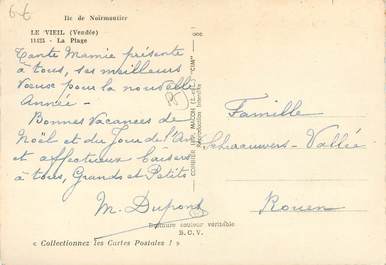 6€
Ile de Noirmoutier
LE VIEIL (Vendée)
11425 - La Plage
Tante Mamie présente
à tous, ses meilleurs
Vœux pour la nouvelle
Année -
Bonnes Vacances de
Noël et du Jour de l'An
et affectueux baisers
à tous, Grands et Petits
M. Dupond
« Collectionnez les Cartes Postales ! »
COMBIER IMP. MACON (S.-et-L.) "CIM"
Reproduction Interdite
Bromure couleur véritable
B. C. V.
Famille
Vallée
Rouen